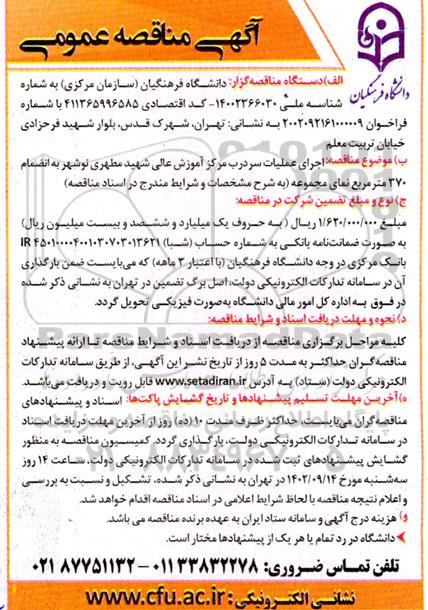 آگهی مناقصه عمومی
دانشگاه فرهنگیان
الف) دستگاه مناقصه‌گزار: دانشگاه فرهنگیان (سازمان مرکزی) به شماره
شناسه ملی ۱۴۰۰۲۳۶۶۰۳۰ - کد اقتصادی ۴۱۱۳۶۵۹۹۶۵۸۵ با شماره
فراخوان ۲۰۰۲۰۹۲۱۶۱۰۰۰۰۰۹ به نشانی: تهران، شهرک قدس، بلوار شهید فرحزادی
خیابان تربیت معلم
ب) موضوع مناقصه: اجرای عملیات سردرب مرکز آموزش عالی شهید مطهری نوشهر به انضمام
۳۷۰ متر مربع نمای مجموعه (به شرح مشخصات و شرایط مندرج در اسناد مناقصه)
ج) نوع و مبلغ تضمین شرکت در مناقصه:
مبلغ ۱/۶۲۰/۰۰۰/۰۰۰ ریال (به حروف یک میلیارد و ششصد و بیست میلیون ریال)
به صورت ضمانت‌نامه بانکی به شماره حساب (شبا) IR ۴۵۰۱۰۰۰۰۴۰۰۱۰۳۰۷۰۳۰۱۳۶۲۱
بانک مرکزی در وجه دانشگاه فرهنگیان (با اعتبار ۳ ماهه) که می‌بایست ضمن بارگذاری
آن در سامانه تدارکات الکترونیکی دولت، اصل برگ تضمین در تهران به نشانی ذکر شده
در فوق به اداره کل امور مالی دانشگاه به‌صورت فیزیکی تحویل گردد.
د) نحوه و مهلت دریافت اسناد و شرایط مناقصه:
کلیه مراحل برگزاری مناقصه از دریافت اسناد و شرایط مناقصه تا ارائه پیشنهاد
مناقصه‌گران حداکثر به مدت ۵ روز از تاریخ نشر این آگهی، از طریق سامانه تدارکات
الکترونیکی دولت (ستاد) به آدرس www.setadiran.ir قابل رویت و دریافت می‌باشد.
ه) آخرین مهلت تسلیم پیشنهادها و تاریخ گشایش پاکت‌ها: اسناد و پیشنهادهای
مناقصه‌گران می‌بایست حداکثر ظرف مدت ۱۰ (ده) روز از آخرین مهلت دریافت اسناد
در سامانه تدارکات الکترونیکی دولت، بارگذاری گردد. کمیسیون مناقصه به منظور
گشایش پیشنهادهای ثبت شده در سامانه تدارکات الکترونیکی دولت، ساعت ۱۴ روز
سه‌شنبه مورخ ۱۴۰۲/۰۹/۱۴ در تهران به نشانی ذکر شده، تشکیل و نسبت به بررسی
و اعلام نتیجه مناقصه با لحاظ شرایط اعلامی در اسناد مناقصه اقدام خواهد شد.
و) هزینه درج آگهی و سامانه ستاد ایران به عهده برنده مناقصه می باشد.
دانشگاه در رد تمام یا هر یک از پیشنهادها مختار است.
تلفن تماس ضروری: ۰۱۱۳۳۸۳۲۲۷۸ - ۰۲۱۸۷۷۵۱۱۳۲
نشانی الکترونیکی: www.cfu.ac.ir